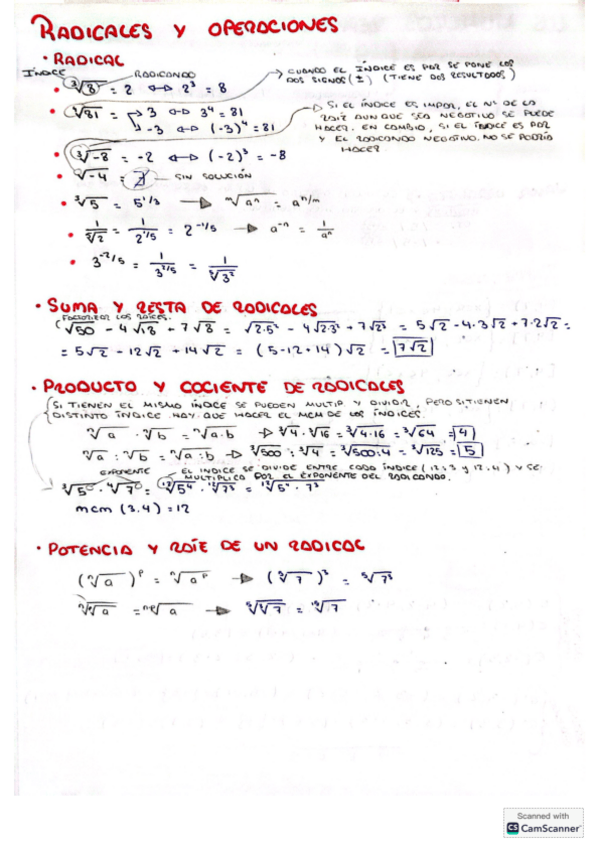 RADICALES Y OPERACIONES
· RADICAL
ÍNDICE RADICANDO
CUANDO EL ÍNDICE ES PAR SE PONE LOS DOS SIGNOS (±) (TIENE DOS RESULTADOS)
· ³√8 = 2 ⇔ 2³ = 8
· ⁴√81 = 3 ⇔ 3⁴ = 81
-3 ⇔ (-3)⁴ = 81
SI EL ÍNDICE ES IMPAR, EL Nº DE LA
RAIZ AUNQUE SEA NEGATIVO SE PUEDE
HACER. EN CAMBIO, SI EL ÍNDICE ES PAR
Y EL RADICANDO NEGATIVO. NO SE PODRÍA
HACER
· ³√-8 = -2 ⇔ (-2)³ = -8
· √-4 = ∄ - SIN SOLUCIÓN
· ³√5 = 5^1/3 → ᵐ√aⁿ = a^n/m
· 1/⁵√2 = 1/2^1/5 = 2^-1/5 → a^-n = 1/aⁿ
· 3^-2/5 = 1/3^2/5 = 1/⁵√3²
· SUMA Y RESTA DE RADICALES
FACTORIZAR LAS RAICES.
√50 - 4√18 + 7√8 = √2·5² - 4√2·3² + 7√2³ = 5√2 - 4·3√2 + 7·2√2 =
= 5√2 - 12√2 + 14√2 = (5-12+14)√2 = 7√2
· PRODUCTO Y COCIENTE DE RADICALES
SI TIENEN EL MISMO ÍNDICE SE PUEDEN MULTIP. Y DIVIDIR, PERO SI TIENEN
DISTINTO ÍNDICE HAY QUE HACER EL MCM DE LOS ÍNDICES.
ⁿ√a · ⁿ√b = ⁿ√a·b → ³√4 · ³√16 = ³√4·16 = ³√64 = 4
ⁿ√a : ⁿ√b = ⁿ√a:b → ³√500 : ³√4 = ³√500:4 = ³√125 = 5
EXPONENTE
EL INDICE SE DIVIDE ENTRE CADA ÍNDICE (12:3 y 12:4) Y SE
MULTIPLICA POR EL EXPONENTE DEL RADICANDO.
³√5 · ⁴√7 = ¹²√5⁴ · ¹²√7³ = ¹²√5⁴ · 7³
mcm (3,4) = 12
· POTENCIA Y RAÍZ DE UN RADICAL
(ⁿ√a)ᵖ = ⁿ√aᵖ → (⁵√7)³ = ⁵√7³
= √a → = √7
Scanned with
CS CamScanner